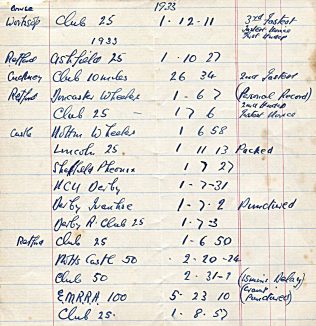 1933
Worksop Club 25 1 - 12 - 11 3rd Fastest
1933
Retford Ashfield 25 1 - 10 27
Cuckney Club 10 miles 26 34 2nd Fastest
Retford Doncaster Wheelers 1 - 6 7 (Personal Record)
Club 25 1 7 6
Castle Hotton Wheelers 1 6 58
Lincoln 25 1 11 13 Packed
Sheffield Pheonix 1 7 27
NCU Derby 1 - 7 - 31
Derby Ivanhoe 1 - 7 - 2 Punctured
Derby R. Club 25 1 - 7 - 3
Retford Club 25 1 - 6 50
Notts Castle 50 2 - 20 - 24
Club 50 2 - 31 - 2 (15 mins Delay)
EMRRA 100 5 - 23 10 Punctured)
Club 25 - 1 - 8 - 57